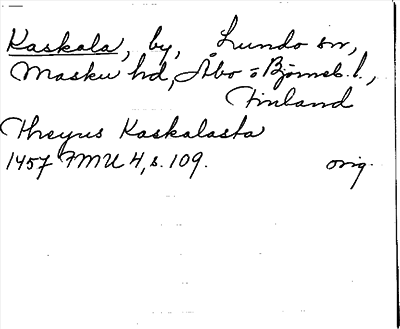 Kaskala, by, Lundo sn,
Masku hd, Åbo o Björneb. l.,
Finland
Threyus Kaskalasta
1457 FMU 4, s. 109. orig.